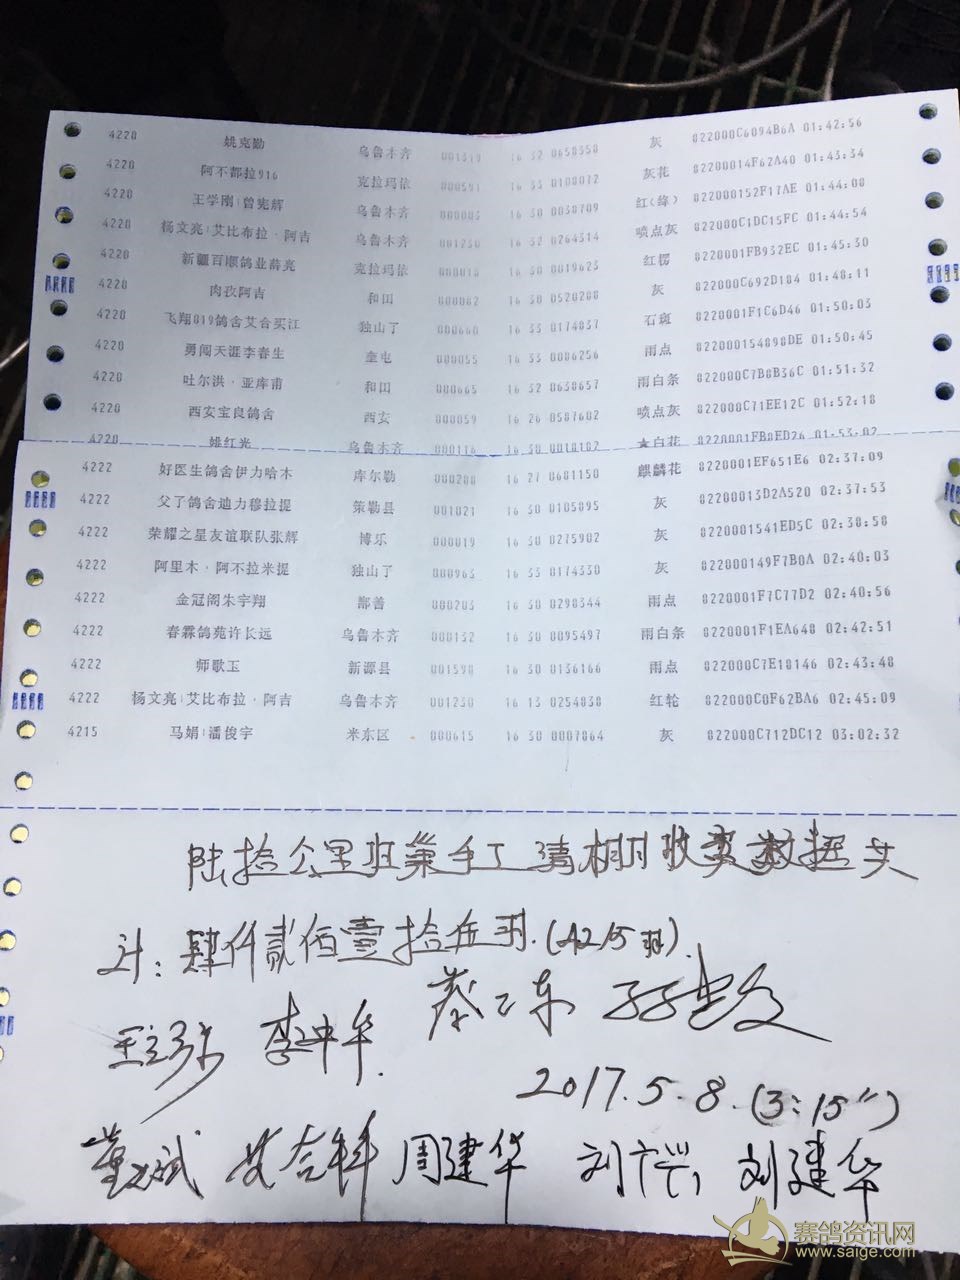 4220 姚克勤 乌鲁木齐 001319 16 32 0658358 灰 822000C6094B6A 01:42:56
4220 阿不都拉916 克拉玛依 000591 16 33 0100072 灰花 82200014F62A40 01:43:34
4220 王学刚|曾宪辉 乌鲁木齐 000003 16 30 0030709 红(绛) 822000152F17AE 01:44:00
4220 杨文亮|艾比布拉·阿吉 乌鲁木齐 001230 16 32 0264314 喷点灰 822000C1DC15FC 01:44:54
4220 新疆百顺鸽业薛亮 克拉玛依 000018 16 30 0019623 红楞 8220001FB932EC 01:45:30
4220 肉孜阿吉 和田 000002 16 30 0520288 灰 822000C692D184 01:48:11
4220 飞翔819鸽舍艾合买江 独山了 000660 16 33 0174037 石斑 8220001F1C6D46 01:50:03
4220 勇闯天涯李春生 奎屯 000055 16 33 0006256 雨点 822000154898DE 01:50:45
4220 吐尔洪·亚库甫 和田 000665 16 32 0630657 雨白条 822000C7B8B36C 01:51:32
4220 西安宝良鸽舍 西安 000059 16 26 0587602 喷点灰 822000C71EE12C 01:52:18
4220 姚红光 乌鲁木齐 000116 16 30 0018102 ★白花 8220001FB8ED26 01:53:02
4222 好医生鸽舍伊力哈木 库尔勒 000280 16 27 0681150 麒麟花 8220001EF651E6 02:37:09
4222 父了鸽舍迪力穆拉提 策勒县 001021 16 30 0105895 灰 82200013D2A520 02:37:53
4222 荣耀之星友谊联队张辉 博乐 000019 16 30 0275902 灰 8220001541ED5C 02:38:58
4222 阿里木·阿不拉米提 独山了 000963 16 33 0174330 灰 822000149F7B0A 02:40:03
4222 金冠阁朱宇翔 鄯善 000203 16 30 0298344 雨点 8220001F7C77D2 02:40:56
4222 春霖鸽苑许长远 乌鲁木齐 000132 16 30 0095497 雨白条 8220001F1EA648 02:42:51
4222 师歌玉 新源县 001590 16 30 0136166 雨点 822000C7E18146 02:43:48
4222 杨文亮|艾比布拉·阿吉 乌鲁木齐 001230 16 13 0254838 红轮 822000C0F62BA6 02:45:09
4215 马娟|潘俊宇 米东区 000615 16 30 0007064 灰 822000C712DC12 03:02:32
陆拾公里归巢手工清棚收卖数据共
计：肆仟贰佰壹拾伍羽.(4215羽).
李中华
2017.5.8.(3:15")
周建华 刘建华
赛鸽资讯网
www.saige.com